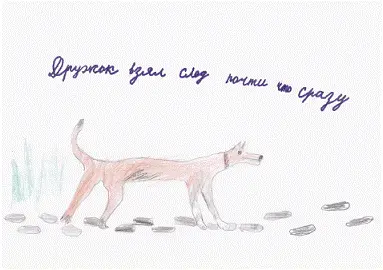 Дружок взял след почти что сразу